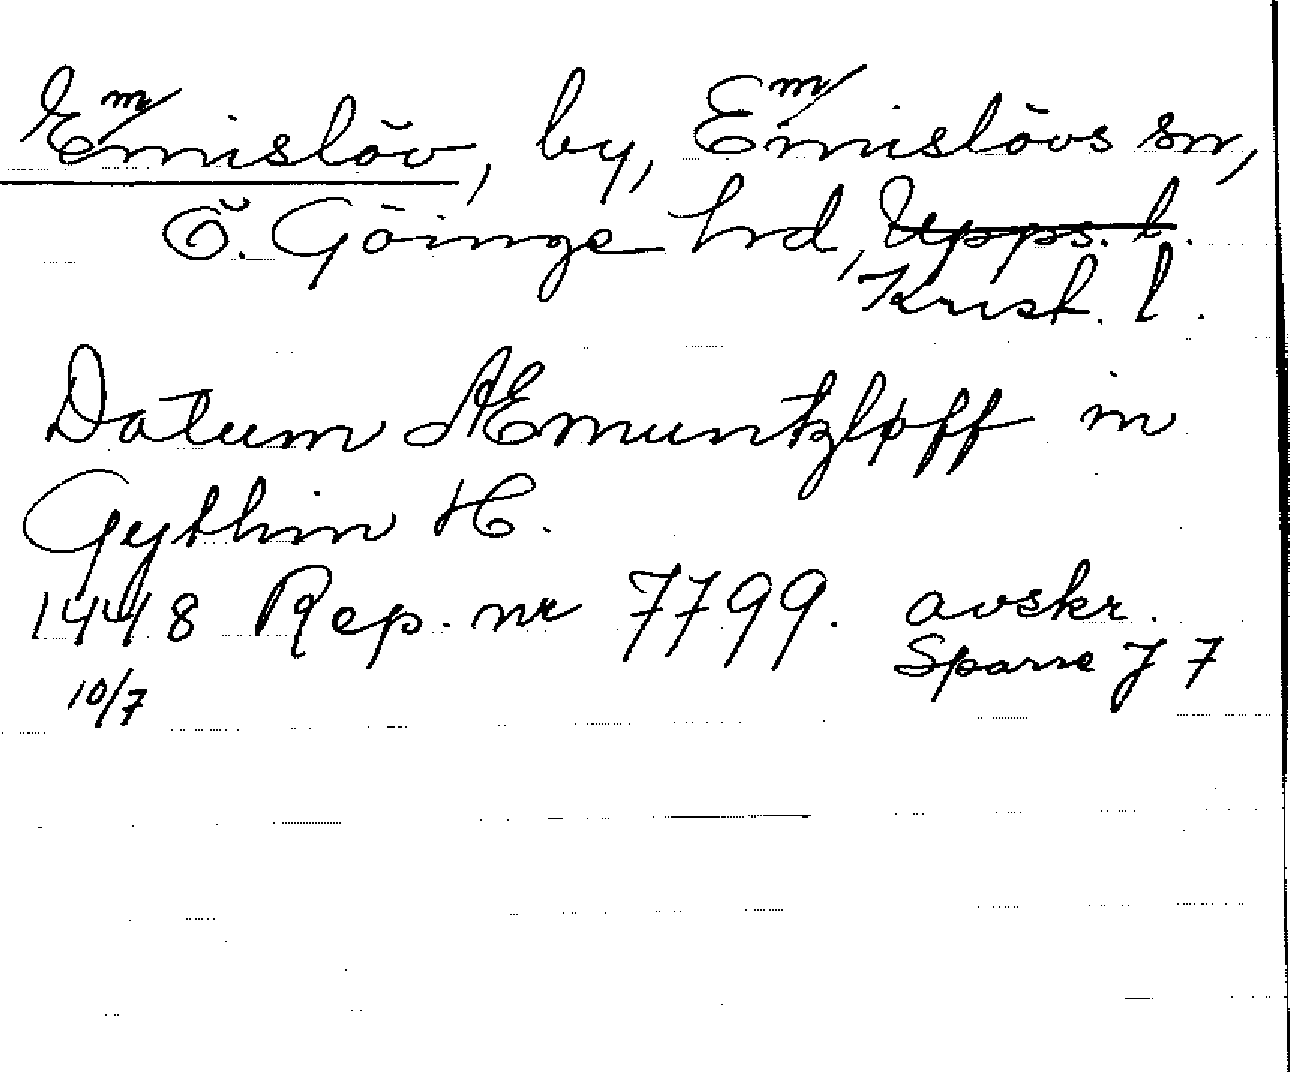 Emmislöv, by, Emmislövs sn,
Ö. Göinge hrd, Upps. l.
Krist. l.
Datum Æmuntzløff in
Gythin H.
1448 Rep. nr 7799. avskr.
10/7 Sparre J 7